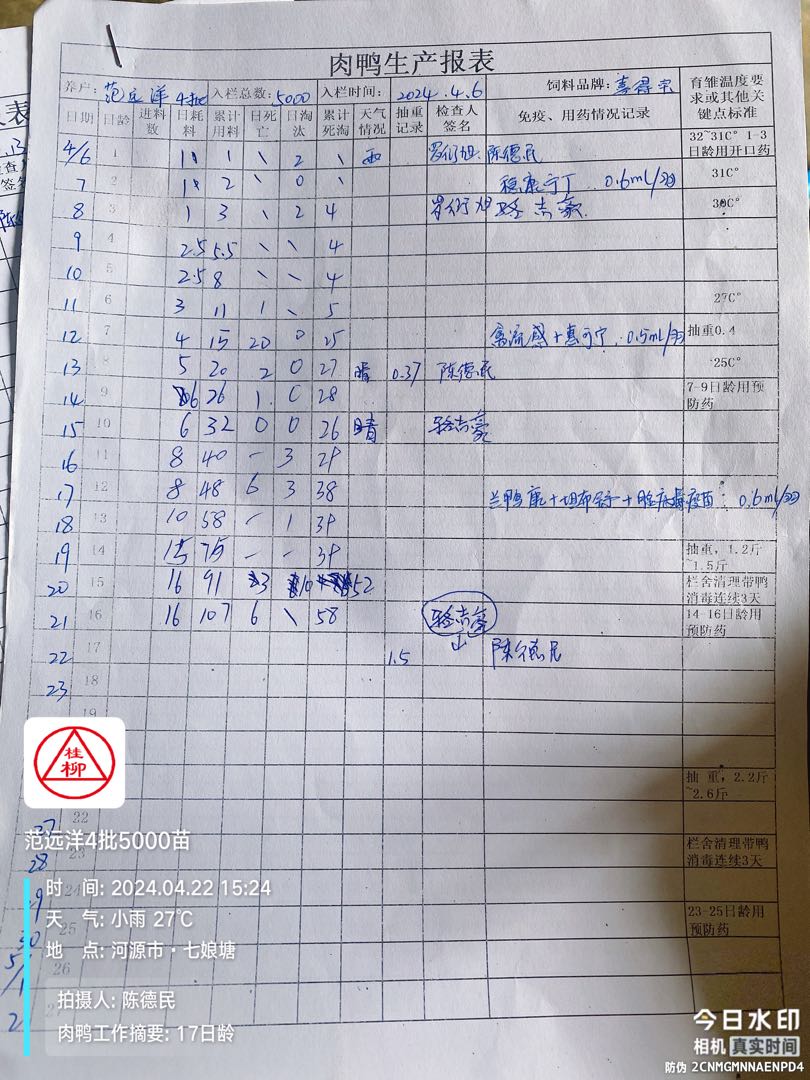 肉鸭生产报表
养户: 范远洋 4批 入栏总数: 5000 入栏时间: 2024.4.6 饲料品牌: 育雏温度要求或其他关键点标准
日期 日龄 进料数 日耗料 累计用料 日死亡 日淘汰 累计死淘 天气情况 抽重记录 检查人签名 免疫、用药情况记录
4/6 1 1 1 \ 2 \ 雨 陈德民 32~31C° 1-3日龄用开口药
7 2 1 2 \ 0 \ 0.6ml/羽 31C°
8 3 1 3 \ 2 4 30C°
9 4 2.5 5.5 \ \ 4
10 5 2.5 8 \ \ 4
11 6 3 11 1 \ 5 27C°
12 7 4 15 20 0 25 禽流感+惠可宁 0.5ml/羽 抽重0.4
13 5 20 2 0 27 晴 0.37 陈德民 25C°
14 9 6 26 1 0 28 7-9日龄用预防药
15 10 6 32 0 0 26 晴
16 11 8 40 - 3 29
17 12 8 48 6 3 38 0.6ml/羽
18 13 10 58 - 1 39
19 14 15 75 - - 39 抽重，1.2斤~1.5斤
20 15 16 91 3 10 52 栏舍清理带鸭消毒连续3天
21 16 16 107 6 \ 58 14-16日龄用预防药
22 17 1.5 陈德民
23 18
19
抽 重，2.2斤~2.6斤
27 22
28 23 栏舍清理带鸭消毒连续3天
24
30 25 23-25日龄用预防药
5/1 26
2
桂柳
范远洋4批5000苗
时 间: 2024.04.22 15:24
天 气: 小雨 27℃
地 点: 河源市·七娘塘
拍摄人: 陈德民
肉鸭工作摘要: 17日龄
今日水印
相机 真实时间
防伪 2CNMGMNNAENPD4